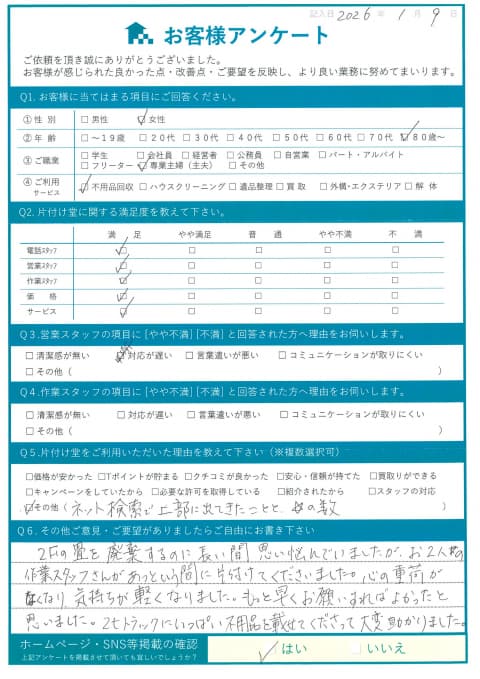 記入日 2026 年 1 月 9 日
お客様アンケート
ご依頼を頂き誠にありがとうございました。
お客様が感じられた良かった点・改善点・ご要望を反映し、より良い業務に努めてまいります。
Q1.お客様に当てはまる項目にご回答ください。
①性 別 □男性 ☑女性
②年 齢 □～19歳 □20代 □30代 □40代 □50代 □60代 □70代 ☑80歳～
③ご職業 □学生 □会社員 □経営者 □公務員 □自営業 □パート・アルバイト
□フリーター ☑専業主婦（主夫） □その他
④ご利用サービス ☑不用品回収 □ハウスクリーニング □遺品整理 □買取 □外構・エクステリア □解体
Q2.片付け堂に関する満足度を教えて下さい。
満 足 やや満足 普 通 やや不満 不 満
電話スタッフ ☑ □ □ □ □
営業スタッフ ☑ □ □ □ □
作業スタッフ ☑ □ □ □ □
価 格 ☑ □ □ □ □
サービス ☑ □ □ □ □
Q3.営業スタッフの項目に[やや不満][不満]と回答された方へ理由をお伺いします。
□清潔感が無い □対応が遅い □言葉遣いが悪い □コミュニケーションが取りにくい
□その他（ ）
Q4.作業スタッフの項目に[やや不満][不満]と回答された方へ理由をお伺いします。
□清潔感が無い □対応が遅い □言葉遣いが悪い □コミュニケーションが取りにくい
□その他（ ）
Q5.片付け堂をご利用いただいた理由を教えて下さい（※複数選択可）
□価格が安かった □Tポイントが貯まる □クチコミが良かった □安心・信頼が持てた □買取りができる
□キャンペーンをしていたから □必要な許可を取得している □紹介されたから □スタッフの対応
☑その他（ネット検索で上部に出てきたことと、の数 ）
Q6.その他ご意見・ご要望がありましたらご自由にお書き下さい
2Fの畳を廃棄するのに長い間思い悩んでいましたが、お2人の
作業スタッフさんがあっという間に片付けてくださいました。心の重荷が
なくなり、気持ちが軽くなりました。もっと早くお願いすればよかったと
思いました。2tトラックにいっぱい不用品を載せてくださって大変助かりました。
ホームページ・SNS等掲載の確認 ☑はい □いいえ
上記アンケートを掲載させて頂いても宜しいでしょうか？